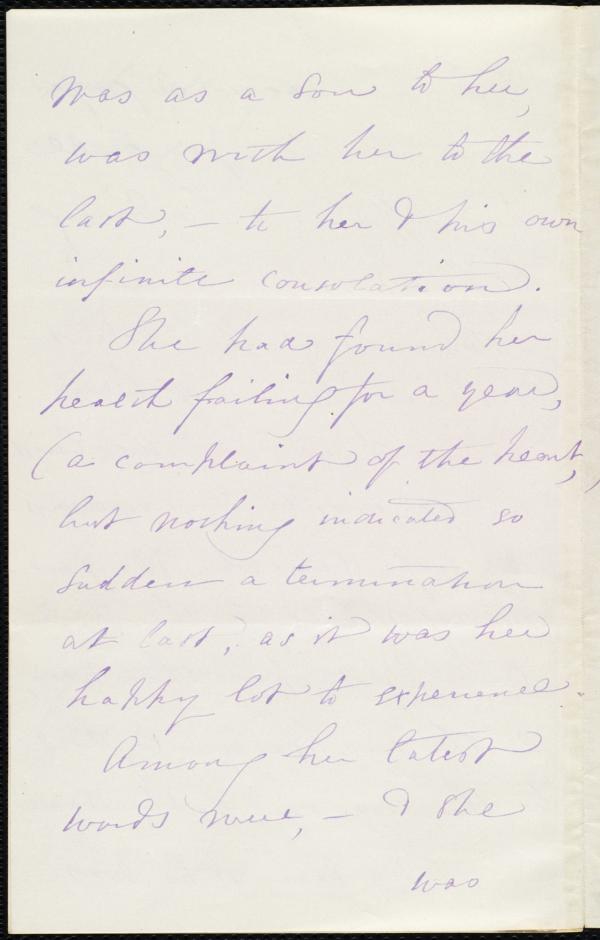 was as a son to her,
was with her to the
last, – to her & his own
infinite consolation.
She had found her
health failing for a year,
(a complaint of the heart,)
but nothing indicated so
sudden a termination
at last, as it was her
happy lot to experience.
Among her latest
words were, – & she
was